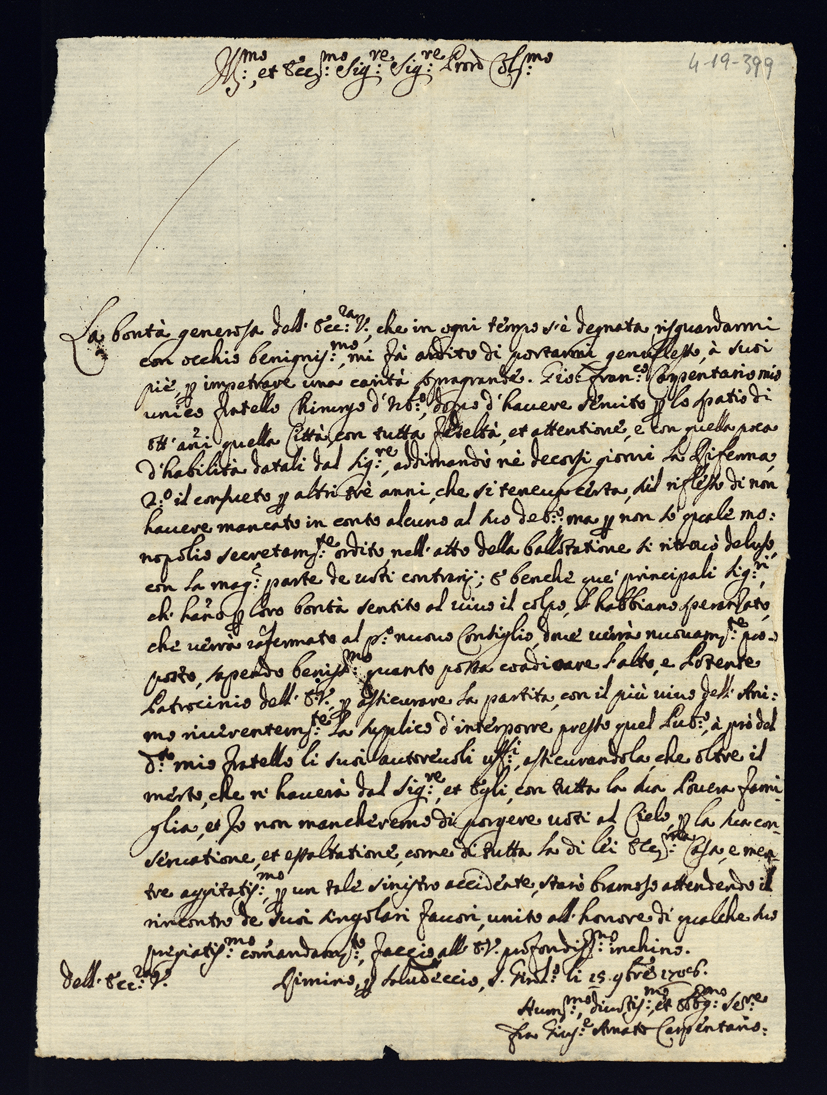 Ill:mo, et Ecc:mo Sig:re Sig:re Prod Col:mo
4-19-399
La bontà generosa dell' Ecc:za V:, che in ogni tempo s'è degnata risguardarmi
con occhio benignis:mo, mi fà ardito di portarmi genuflesso, à suoi
piè, p impetrare una carità sopragrande. Gio: Fran:co Carpentario mio
unico fratello Chirurgo d' dopo d'havere servito p lo spatio di
ott' anni quella Città, con tutta fedeltà, et attentione, e con quella poca
d'habilità datali dal Sig:re, addimandò nè decorsi giorni la Rifferma,
2:o il consueto p altri trè anni, che si teneva certa, sul riflesso di non
havere mancato in conto alcuno al suo deb:o: ma p non sò quale mo:
nopolio secretam:te ordito, nell' atto della ballottatione si ritrovò deluso,
con la mag:r parte de voti contrarij; E benche que' principali Sig:ri,
ch' hano p loro bontà sentito al vivo il colpo, l' habbiano speranzato,
che verrà raffermato al p:o nuovo Consiglio, dove verrà nuovam:te pro-
posto, sapendo beniss:mo quanto possa coadiuvare l'alto, e Potente
Patrocinio dell' E.V. p assicurare la partita, con il più vivo dell' Ani-
mo riverentem:te La supplico d'interporre presso quel Pub:o, à prò del
d:to mio fratello li suoi autorevoli uffi:, assicurandola, che oltre il
merto, che ne haverà dal Sig:re, et Egli, con tutta la sua Povera fami-
glia, et Io non mancheremo di porgere voti al Cielo, p la sua con-
servatione, et essaltatione, come di tutta la di lei Ecc:ma Casa, e men-
tre aggitatis:mo p un tale sinistro accidente, starò bramoso attendendo il
rincontro de suoi singolari favori, unito all' honore di qualche suo
pregiatis:mo comandam:to, faccio all' E.V. profondiss:mo inchino.
dell' Ecc:za V:
Rimino, p Saludeccio, li 15 9bre 1706.
Hum:mo, divotis:mo, et Obbg:mo Ser:re
fra Gius:e Amato Carpentario: